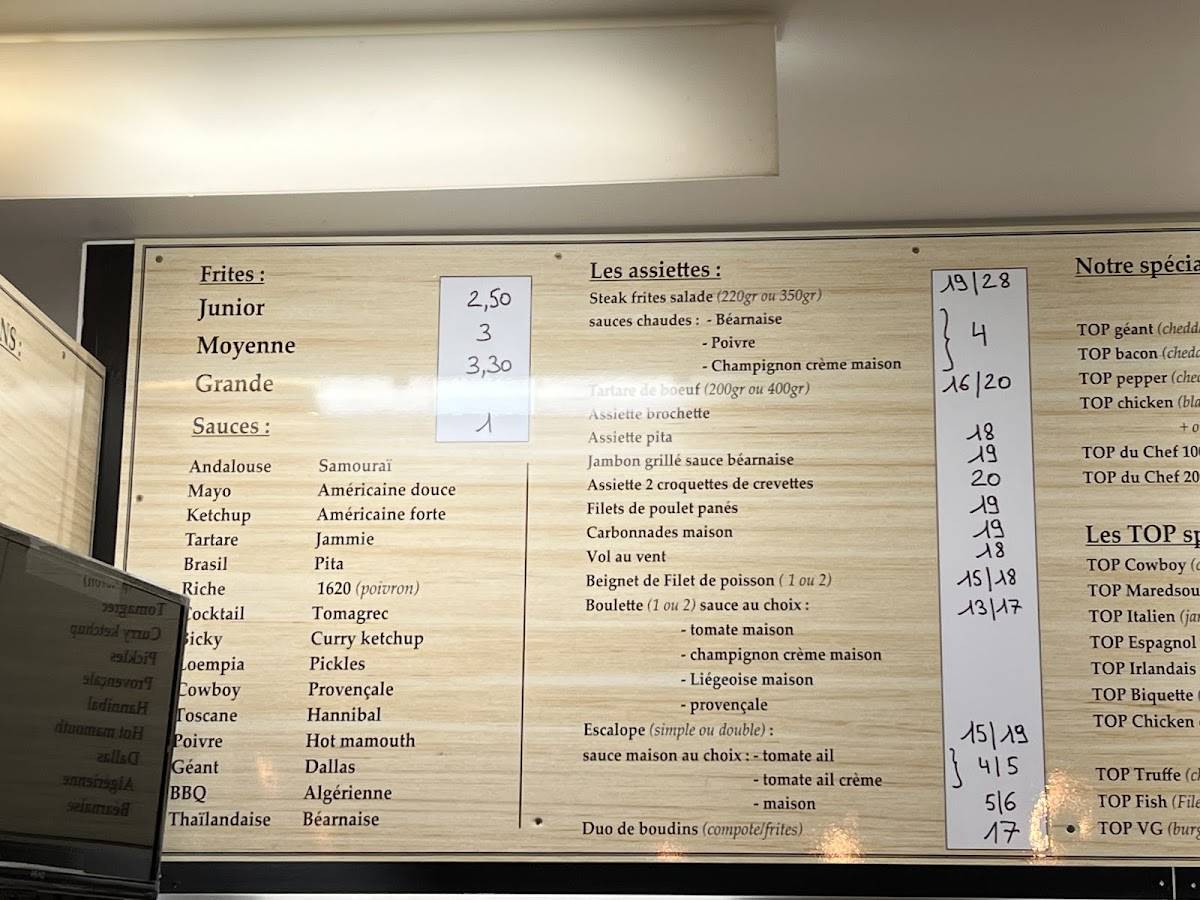 NS:
Frites :
Junior 2,50
Moyenne 3
Grande 3,30
Sauces : 1
Andalouse Samouraï
Mayo Américaine douce
Ketchup Américaine forte
Tartare Jammie
Brasil Pita
Riche 1620 (poivron)
Cocktail Tomagrec
Bicky Curry ketchup
Loempia Pickles
Cowboy Provençale
Toscane Hannibal
Poivre Hot mamouth
Géant Dallas
BBQ Algérienne
Thaïlandaise Béarnaise
Les assiettes :
Steak frites salade (220gr ou 350gr) 19/28
sauces chaudes : - Béarnaise
- Poivre 4
- Champignon crème maison
Tartare de boeuf (200gr ou 400gr) 16/20
Assiette brochette
Assiette pita 18
Jambon grillé sauce béarnaise 19
Assiette 2 croquettes de crevettes 20
Filets de poulet panés 19
Carbonnades maison 19
Vol au vent 18
Beignet de Filet de poisson ( 1 ou 2) 15/18
Boulette (1 ou 2) sauce au choix : 13/17
- tomate maison
- champignon crème maison
- Liégeoise maison
- provençale
Escalope (simple ou double) : 15/19
sauce maison au choix : - tomate ail 4/5
- tomate ail crème
- maison 5/6
Duo de boudins (compote/frites) 17
Notre spécia
TOP géant (chedd
TOP bacon (chedd
TOP pepper (ched
TOP chicken (bla
+ o
TOP du Chef 10
TOP du Chef 20
Les TOP sp
TOP Cowboy (
TOP Maredsou
TOP Italien (ja
TOP Espagnol
TOP Irlandais
TOP Biquette (
TOP Chicken
TOP Truffe (c
TOP Fish (File
TOP VG (burg
Tomagrec
Curry ketchup
Pickles
Provençale
Hannibal
Hot mamouth
Dallas
Algérienne
Béarnaise